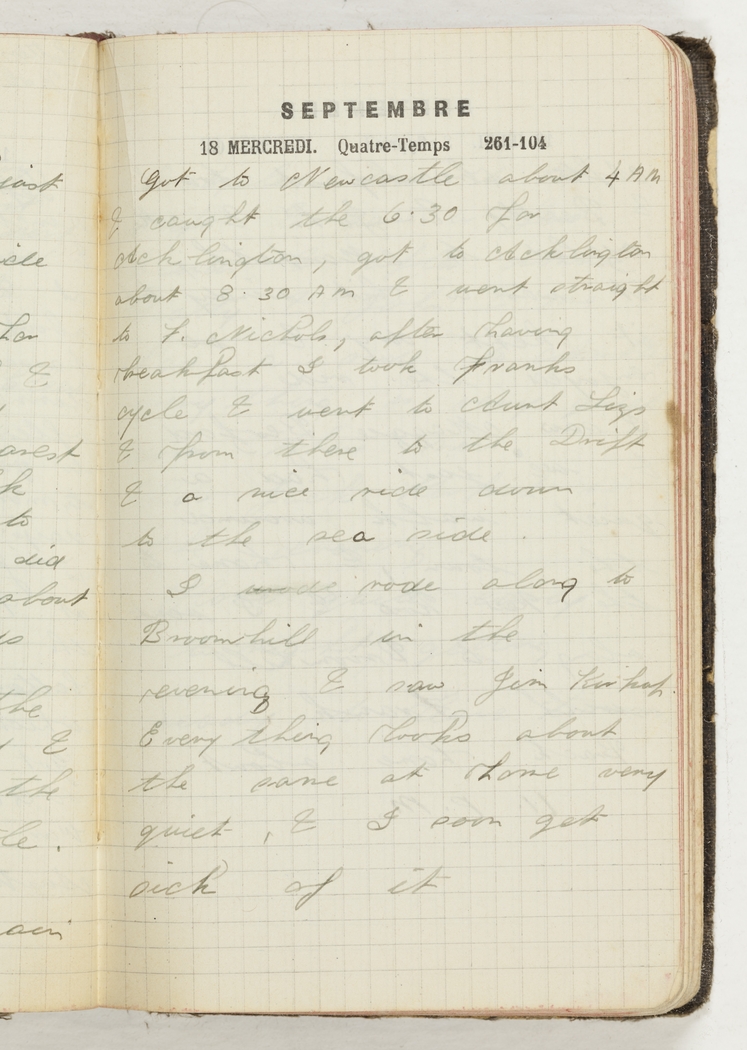 SEPTEMBRE
18 MERCREDI. Quatre-Temps 261-104
Got to Newcastle about 4 AM
& caught the 6.30 for
Acklington, got to Acklington
about 8.30 AM & went straight
to F. Nichols, after having
breakfast I took Franks
cycle & went to Aunt Lizs
& from there to the Drift
& a nice ride down
to the sea side.
I rode along to
Broomhill in the
evening & saw Jim Kirkup.
Every thing looks about
the same at home very
quiet, & I soon get
sick of it
did
about
to
the
& 
the